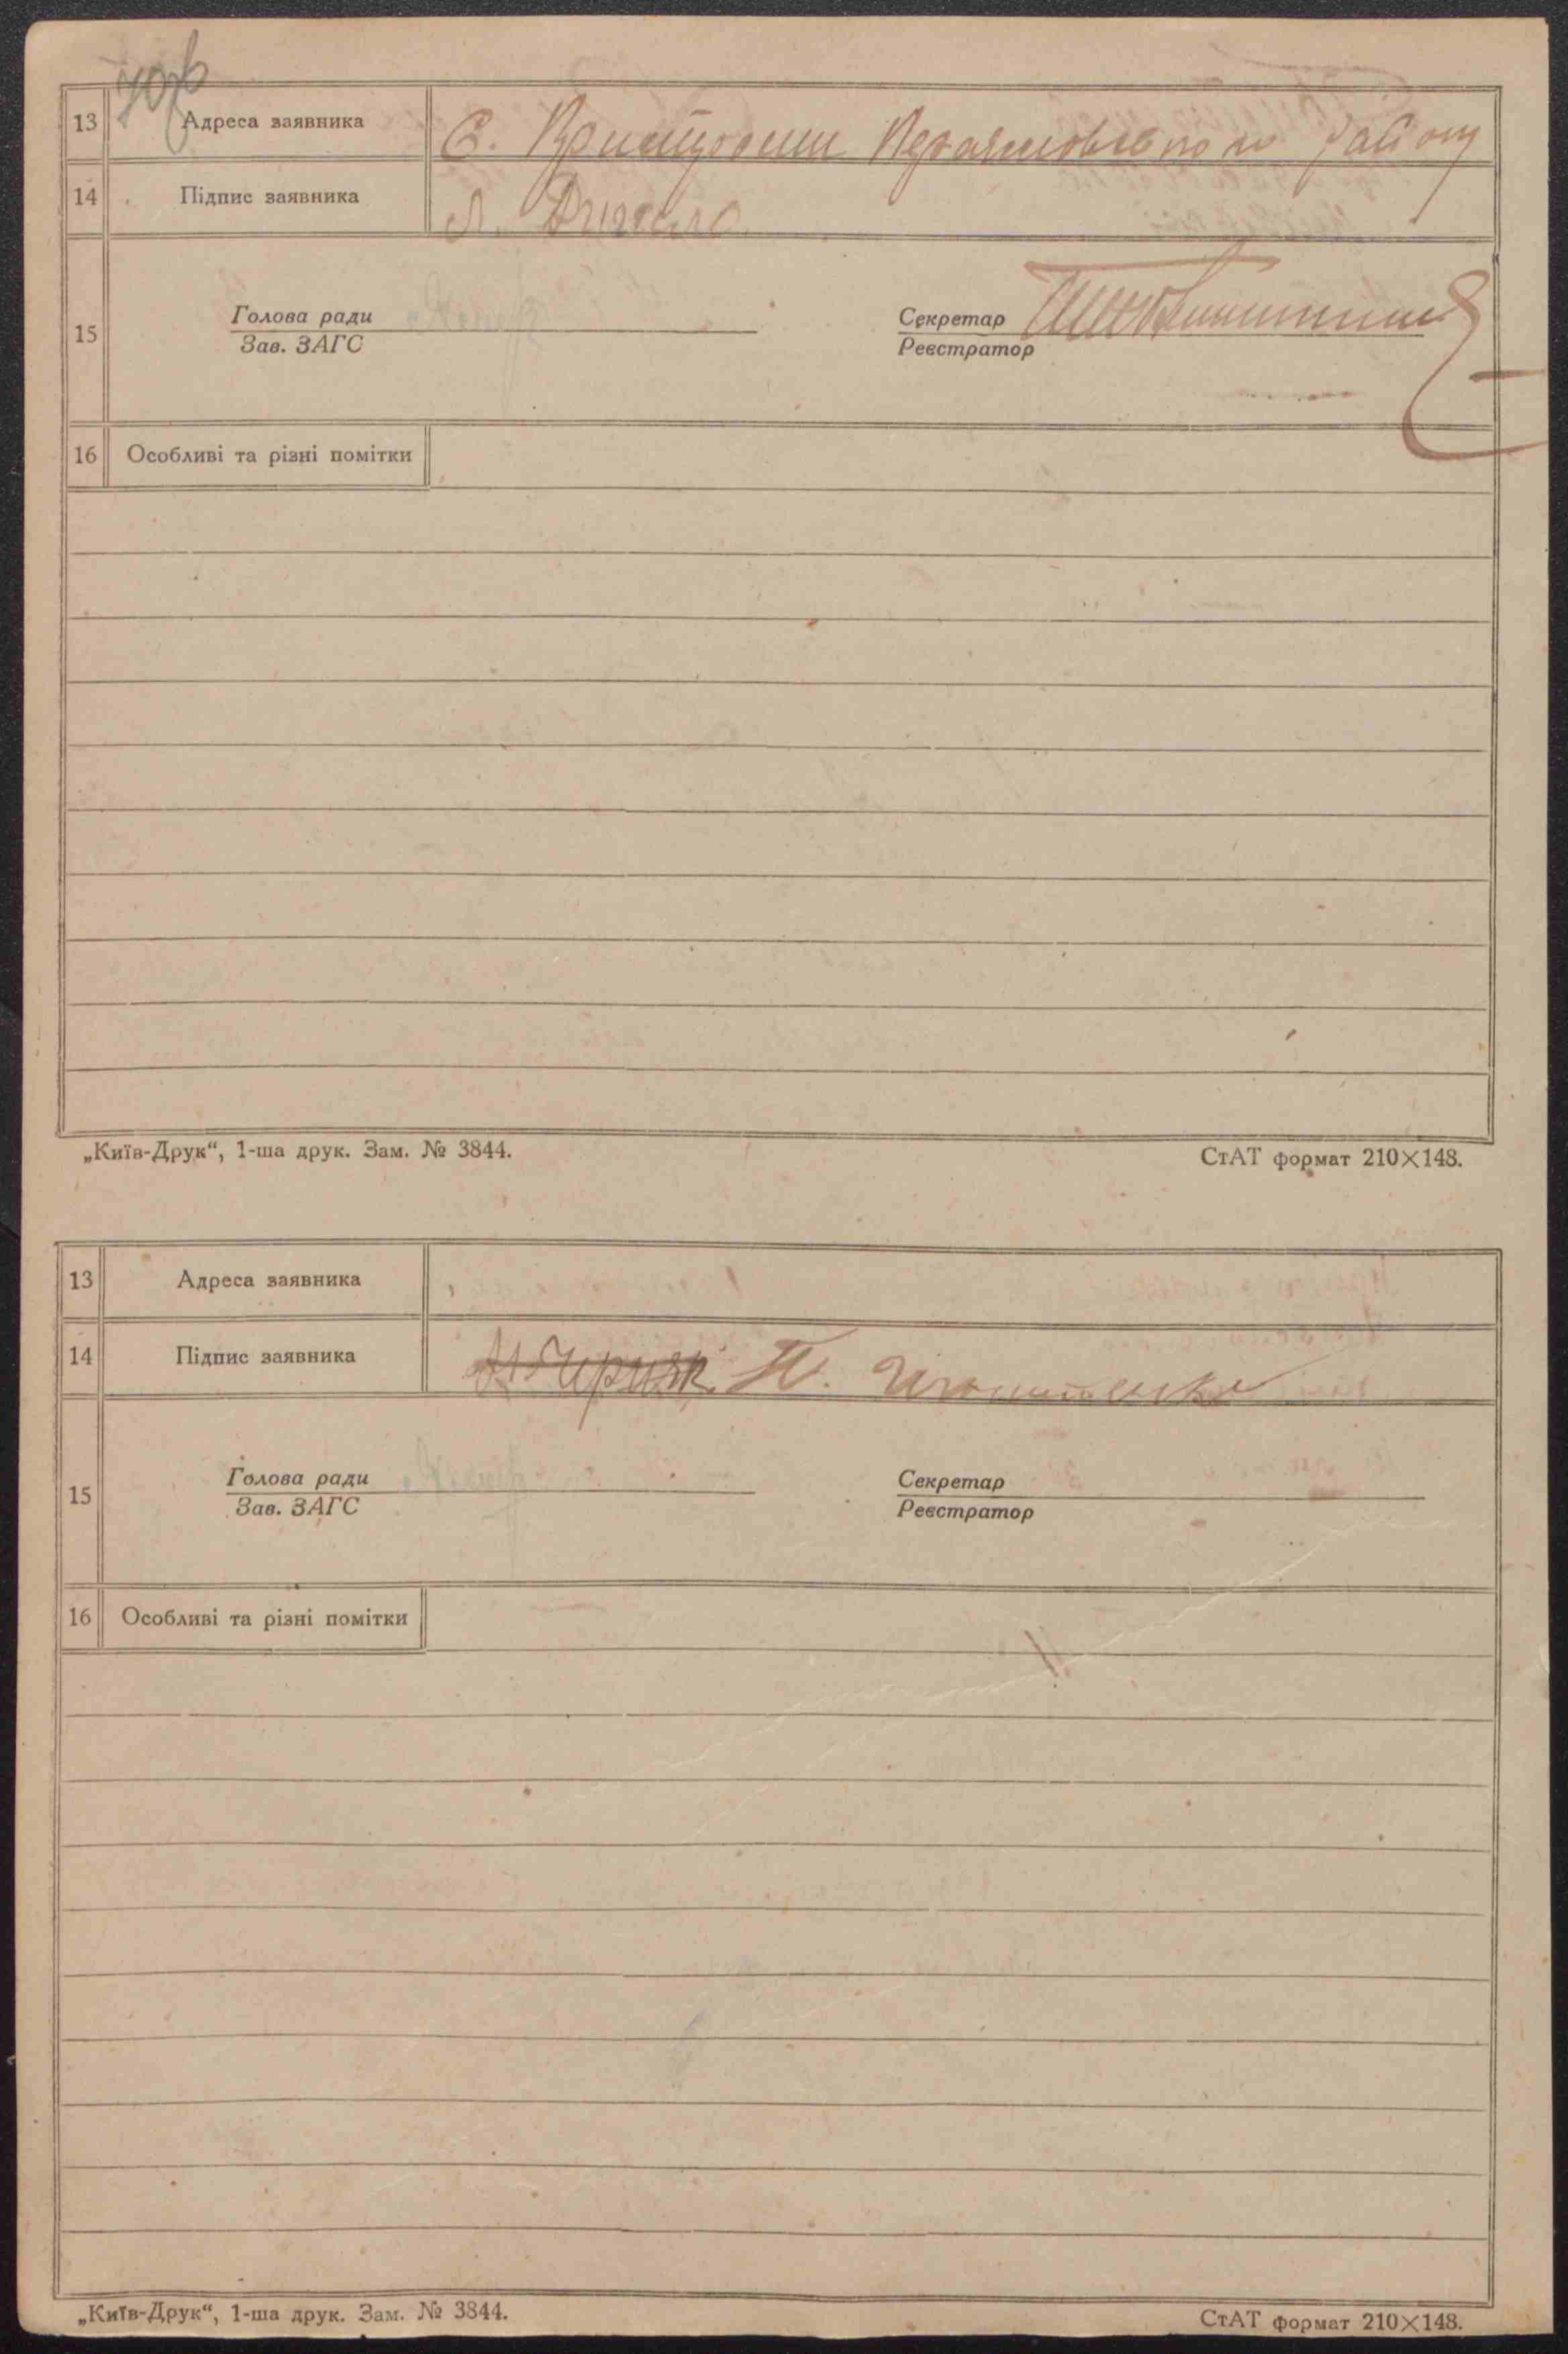 13 Адреса заявника С. району
14 Підпис заявника
15 Голова ради Секретар
Зав. ЗАГС Реєстратор
16 Особливі та різні помітки
„Київ-Друк“, 1-ша друк. Зам. № 3844. СтАТ формат 210×148.
13 Адреса заявника
14 Підпис заявника
15 Голова ради Секретар
Зав. ЗАГС Реєстратор
16 Особливі та різні помітки
„Київ-Друк“, 1-ша друк. Зам. № 3844. СтАТ формат 210×148.